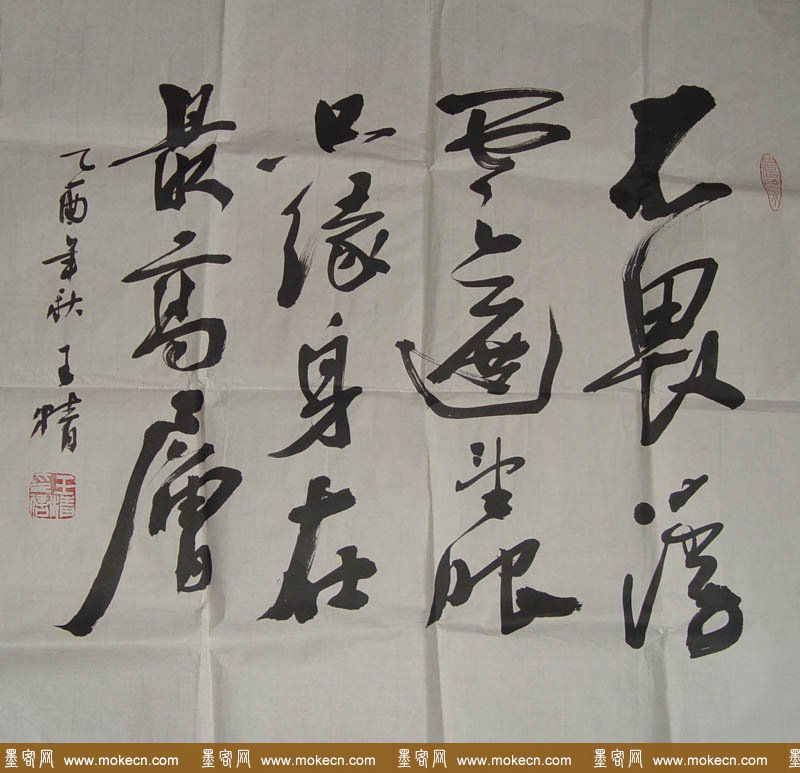 不畏浮
雲遮望眼
只緣身在
最高層
乙酉年秋 王精
墨客网 www.mokecn.com 墨客网 www.mokecn.com 墨客网 www.mokecn.com 墨客网 www.mokecn.com 墨